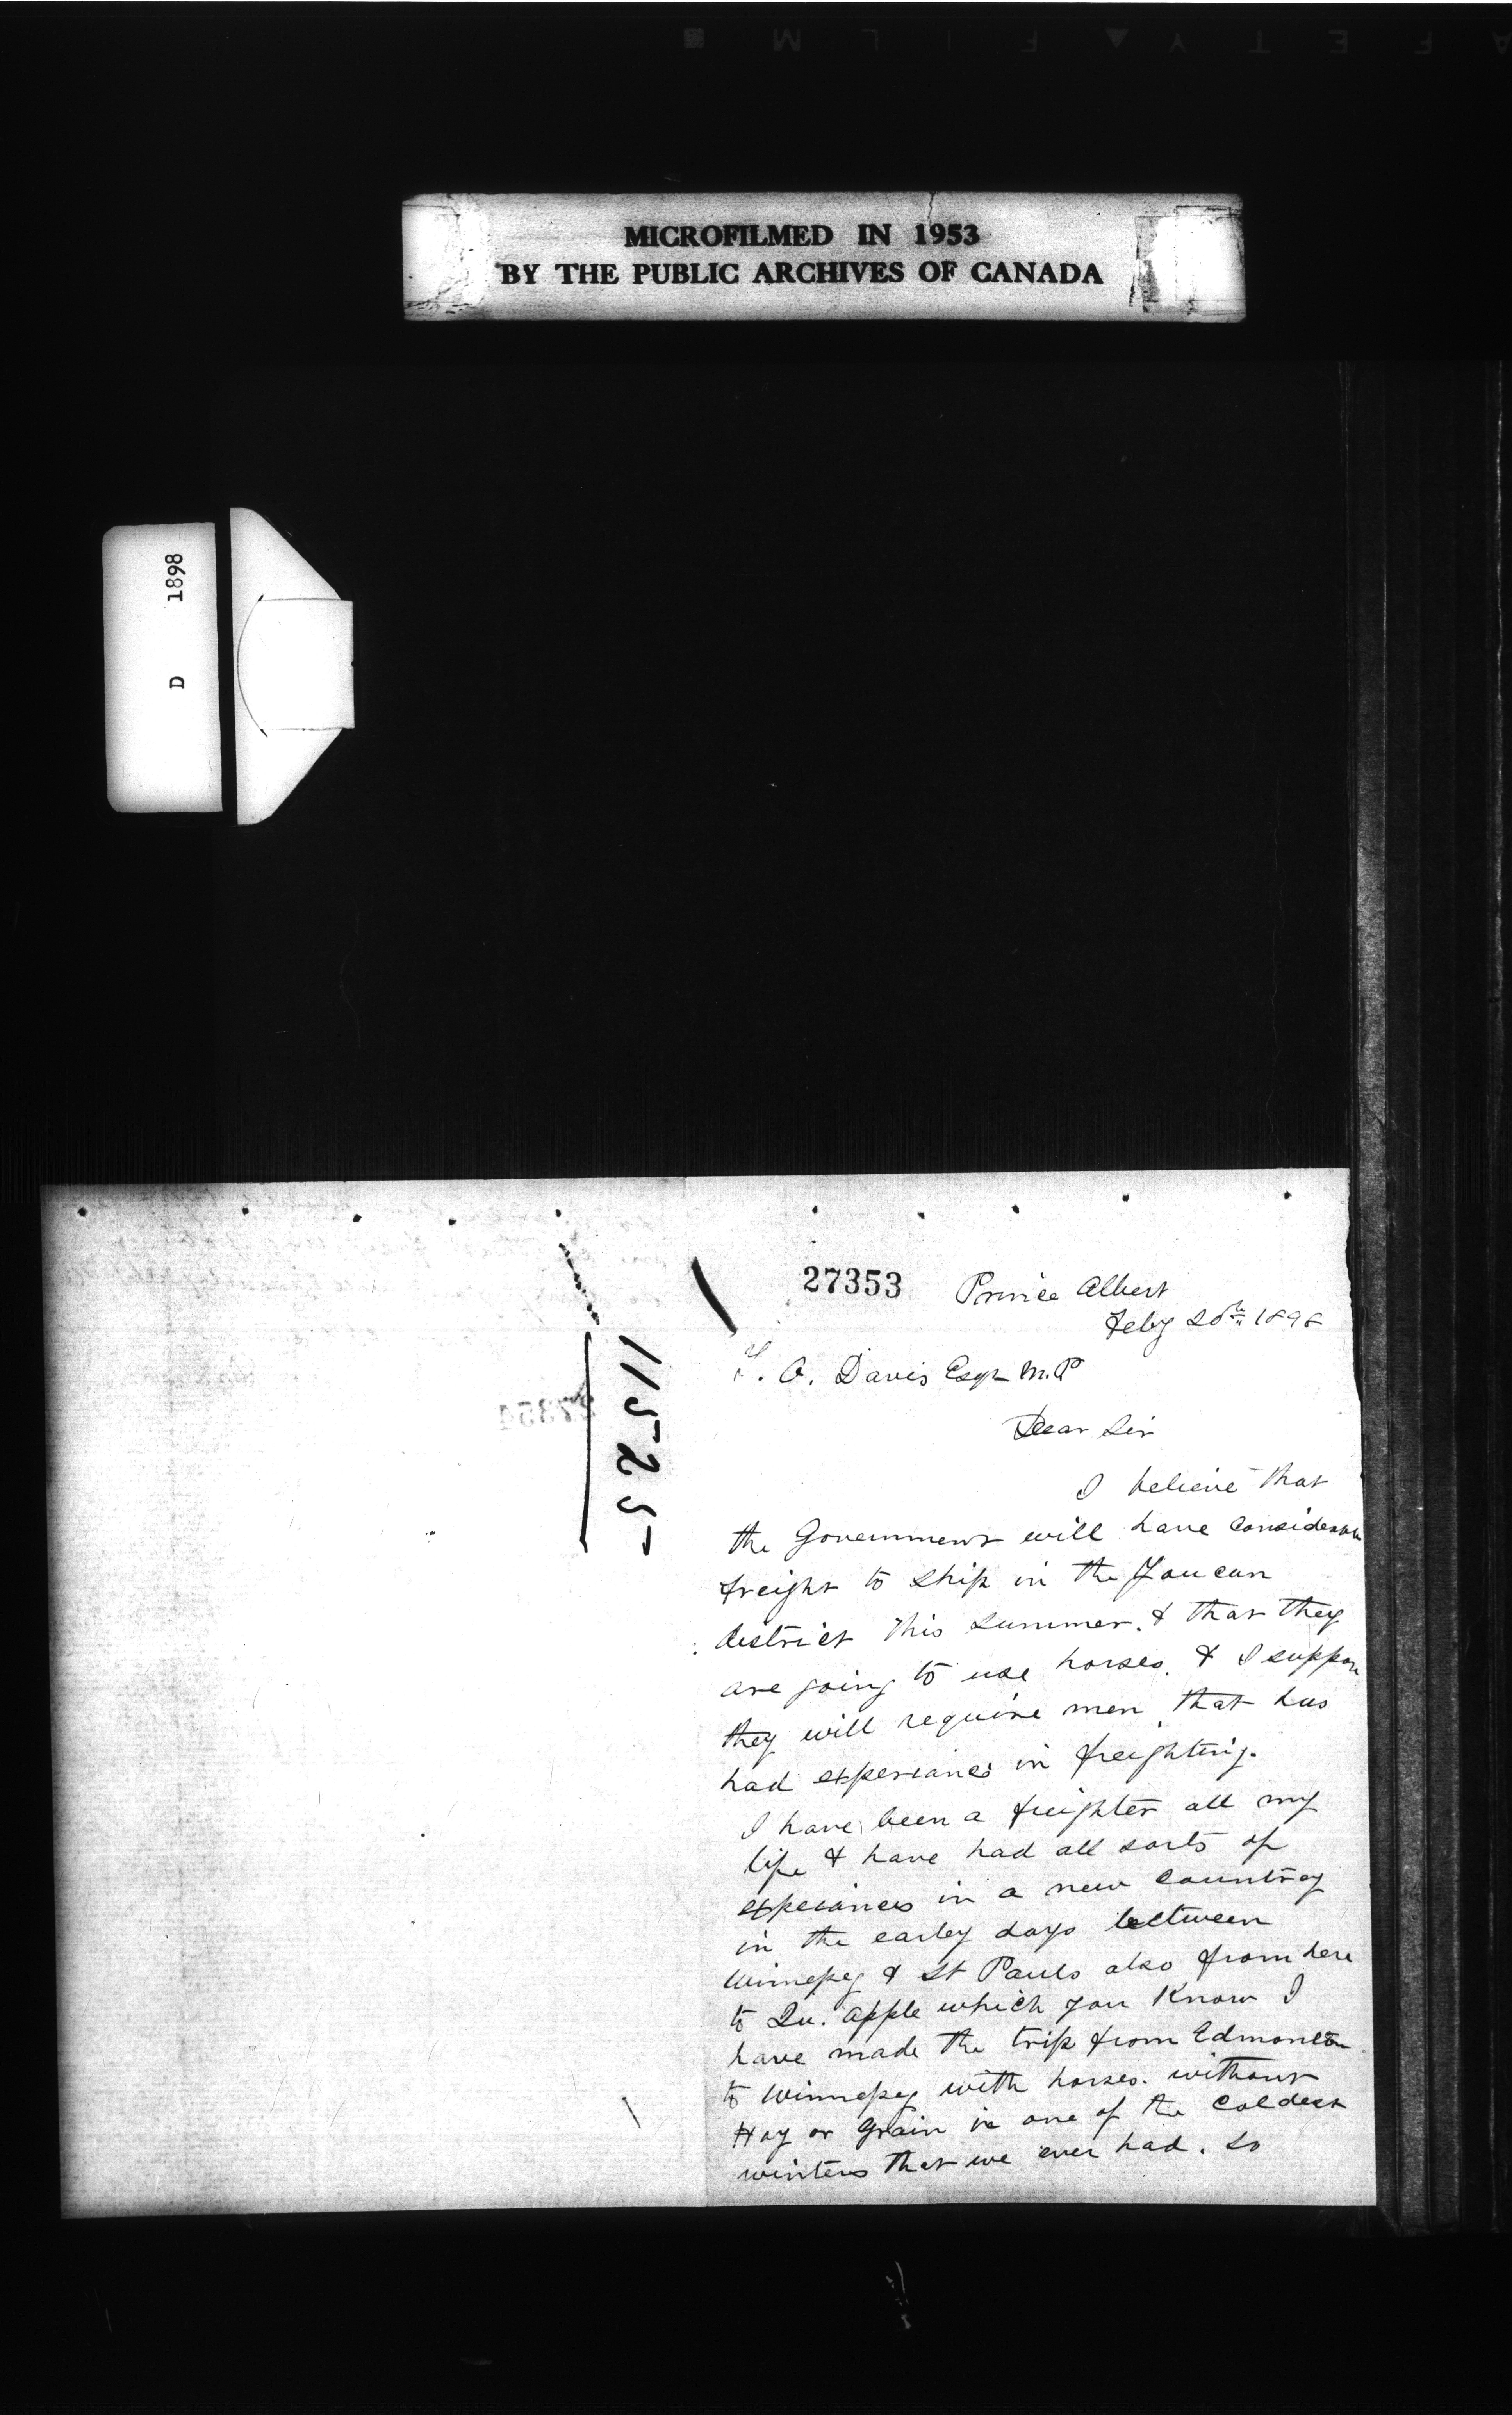 MICROFILMED IN 1953
BY THE PUBLIC ARCHIVES OF CANADA
D 1898
11525
27353
Prince Albert
Feby 20th 1898
T. O. Davis Esqr M.P
Dear Sir
I believe that
the Government will have
freight to ship in the Youcan
district this summer. & that they
are going to use horses. & I suppose
they will require men that has
had experiance in freighting.
I have been a freighter all my
life & have had all sorts of
experiances in a new country
in the earley days between
Winnepeg & St Pauls also from here
to Qu. Apple which you Know I
have made the trip from Edmonton
to Winnepeg with horses. without
Hay or Grain in one of the Coldest
winters that we ever had. So